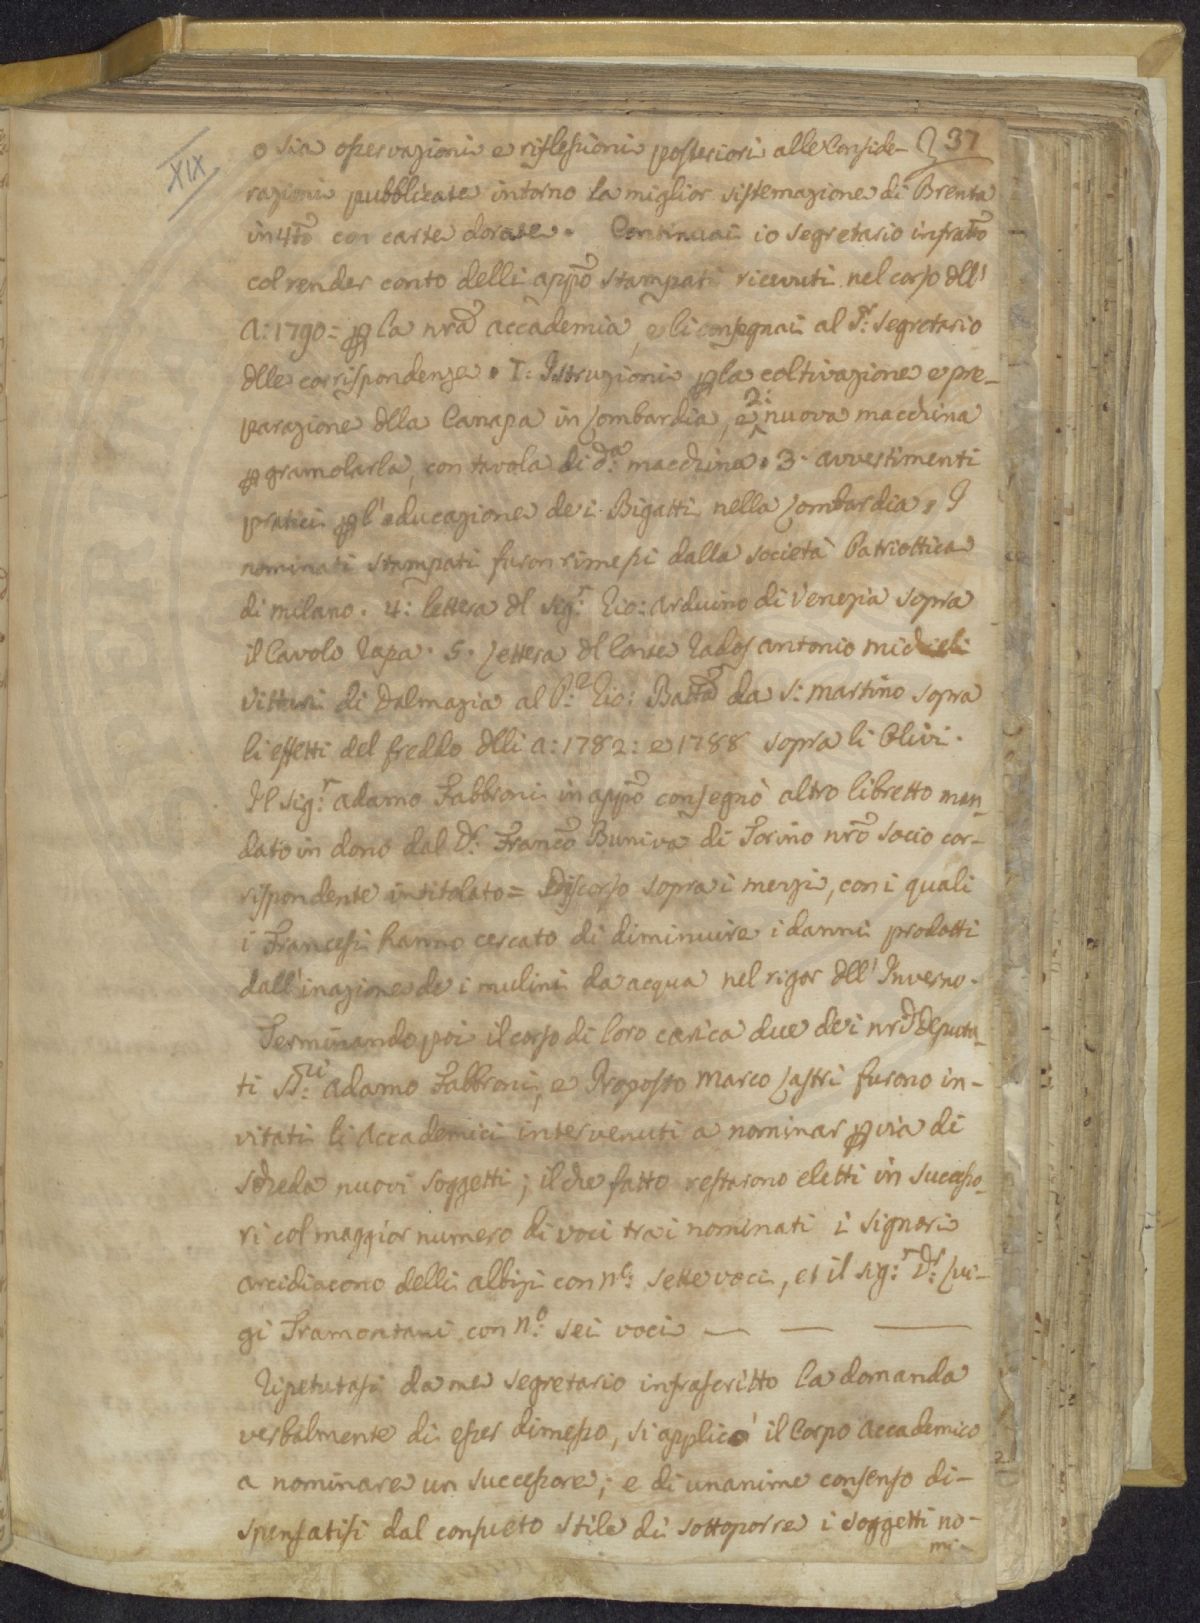 XIX
o sia osservazioni e riflessioni posteriori alle Conside- 37
razioni pubblicate intorno la miglior sistemazione di Brenta
in 4to con carte dorate. Continuai io segretario infratto
col render conto delli appo stampati ricevuti nel corso dll'
A: 1790 = p la nra accademia, e li consegnai al Sr: segretario
dlle corrispondenze. I: Istruzioni p la coltivazione e pre-
parazione dlla Canapa in Lombardia, e 2: nuova macchina
p gramolarla, con tavola di da: macchina. 3. avvertimenti
pratici p l'educazione dei Bigatti nella Lombardia. I
nominati stampati furon rimessi dalla società Patriottica
di milano. 4: lettera dl Sigr: Gio: arduino di Venezia sopra
il Cavolo Rapa. 5. Lettera dl Conte Rados antonio michieli
vitturi di Dalmazia al Pe: Gio: Batta da S: martino sopra
li effetti del freddo dlli a: 1782: e 1788 sopra li Olivi.
Il Sigr: adamo Fabbroni in appo consegnò altro libretto man
dato in dono dal Dr: Franco Buniva di Torino nro socio cor-
rispondente intitolato = Discorso sopra i mezzi, con i quali
i Francesi hanno cercato di diminuire i danni prodotti
dall'inazione de i mulini da acqua nel rigor dll' Inverno.
Terminando poi il corso di loro carica due dei nri deputa-
ti SSri: adamo Fabbroni, e Proposto marco Lastri furono in-
vitati li Accademici intervenuti a nominar p via di
scheda nuovi soggetti; il che fatto restarono eletti in successo-
ri col maggior numero di voci tra i nominati i signori
arcidiacono delli albizi con no: sette voci, et il sigr: Dr: Lui-
gi Tramontani con no: sei voci — — —
Ripetutasi da me segretario infrascritto la domanda
verbalmente di esser dimesso, si applicò il Corpo Accademico
a nominare un successore; e di unanime consenso di-
spensatisi dal consueto stile di sottoporre i soggetti no-
mi-